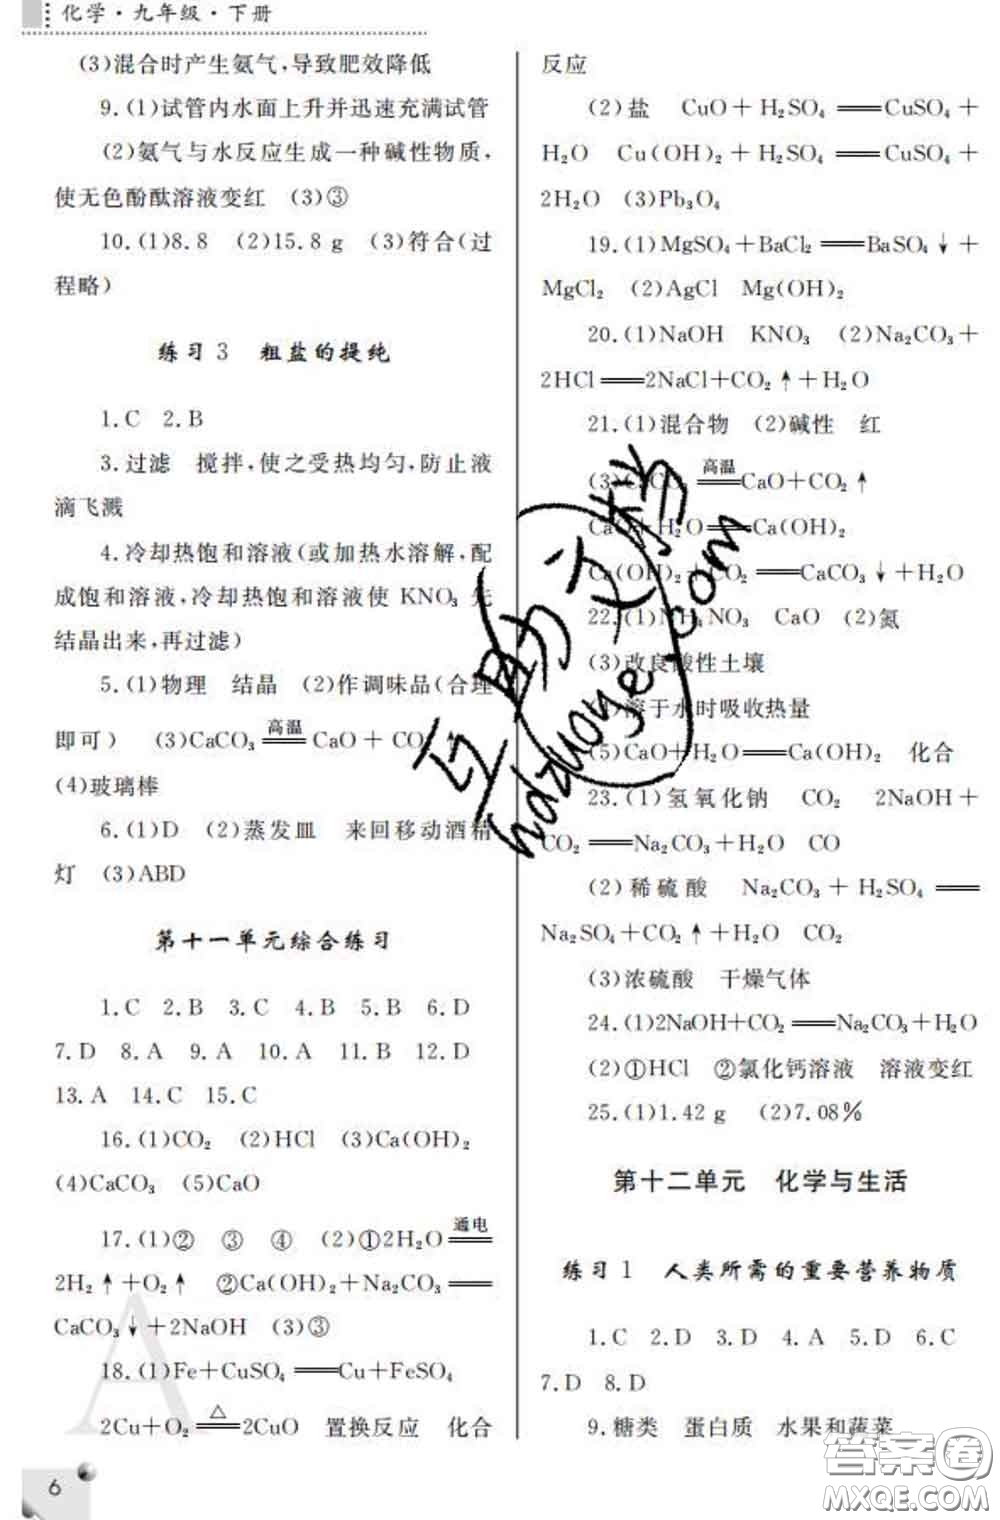 化学·九年级·下册
(3)混合时产生氨气,导致肥效降低
9.(1)试管内水面上升并迅速充满试管
(2)氨气与水反应生成一种碱性物质,
使无色酚酞溶液变红 (3)③
10.(1)8.8 (2)15.8 g (3)符合(过
程略)
练习3 粗盐的提纯
1.C 2.B
3.过滤 搅拌,使之受热均匀,防止液
滴飞溅
4.冷却热饱和溶液(或加热水溶解,配
成饱和溶液,冷却热饱和溶液使 KNO₃ 先
结晶出来,再过滤)
5.(1)物理 结晶 (2)作调味品(合理
即可) (3)CaCO₃ ═高温═ CaO + CO ↑
(4)玻璃棒
6.(1)D (2)蒸发皿 来回移动酒精
灯 (3)ABD
第十一单元综合练习
1.C 2.B 3.C 4.B 5.B 6.D
7.D 8.A 9.A 10.A 11.B 12.D
13.A 14.C 15.C
16.(1)CO₂ (2)HCl (3)Ca(OH)₂
(4)CaCO₃ (5)CaO
17.(1)② ③ ④ (2)①2H₂O ═通电═
2H₂↑+O₂↑ ②Ca(OH)₂+Na₂CO₃ ══
CaCO₃↓+2NaOH (3)③
18.(1)Fe+CuSO₄ ══Cu+FeSO₄
2Cu+O₂ ═△═ 2CuO 置换反应 化合
6
反应
(2)盐 CuO+H₂SO₄ ══CuSO₄+
H₂O Cu(OH)₂+H₂SO₄ ══CuSO₄+
2H₂O (3)Pb₃O₄
19.(1)MgSO₄+BaCl₂ ══BaSO₄↓+
MgCl₂ (2)AgCl Mg(OH)₂
20.(1)NaOH KNO₃ (2)Na₂CO₃+
2HCl══2NaCl+CO₂↑+H₂O
21.(1)混合物 (2)碱性 红
(3)CaCO₃ ═高温═ CaO+CO₂↑
CaO+H₂O══Ca(OH)₂
Ca(OH)₂+CO₂ ══CaCO₃↓+H₂O
22.(1)NH₄NO₃ CaO (2)氮
(3)改良酸性土壤
(4)溶于水时吸收热量
(5)CaO+H₂O══Ca(OH)₂ 化合
23.(1)氢氧化钠 CO₂ 2NaOH+
CO₂ ══Na₂CO₃+H₂O CO
(2)稀硫酸 Na₂CO₃+H₂SO₄ ══
Na₂SO₄+CO₂↑+H₂O CO₂
(3)浓硫酸 干燥气体
24.(1)2NaOH+CO₂ ══Na₂CO₃+H₂O
(2)①HCl ②氯化钙溶液 溶液变红
25.(1)1.42 g (2)7.08%
第十二单元 化学与生活
练习1 人类所需的重要营养物质
1.C 2.D 3.D 4.A 5.D 6.C
7.D 8.D
9.糖类 蛋白质 水果和蔬菜
互助文档
hdzuoye.com
答案圈
MXQE.COM